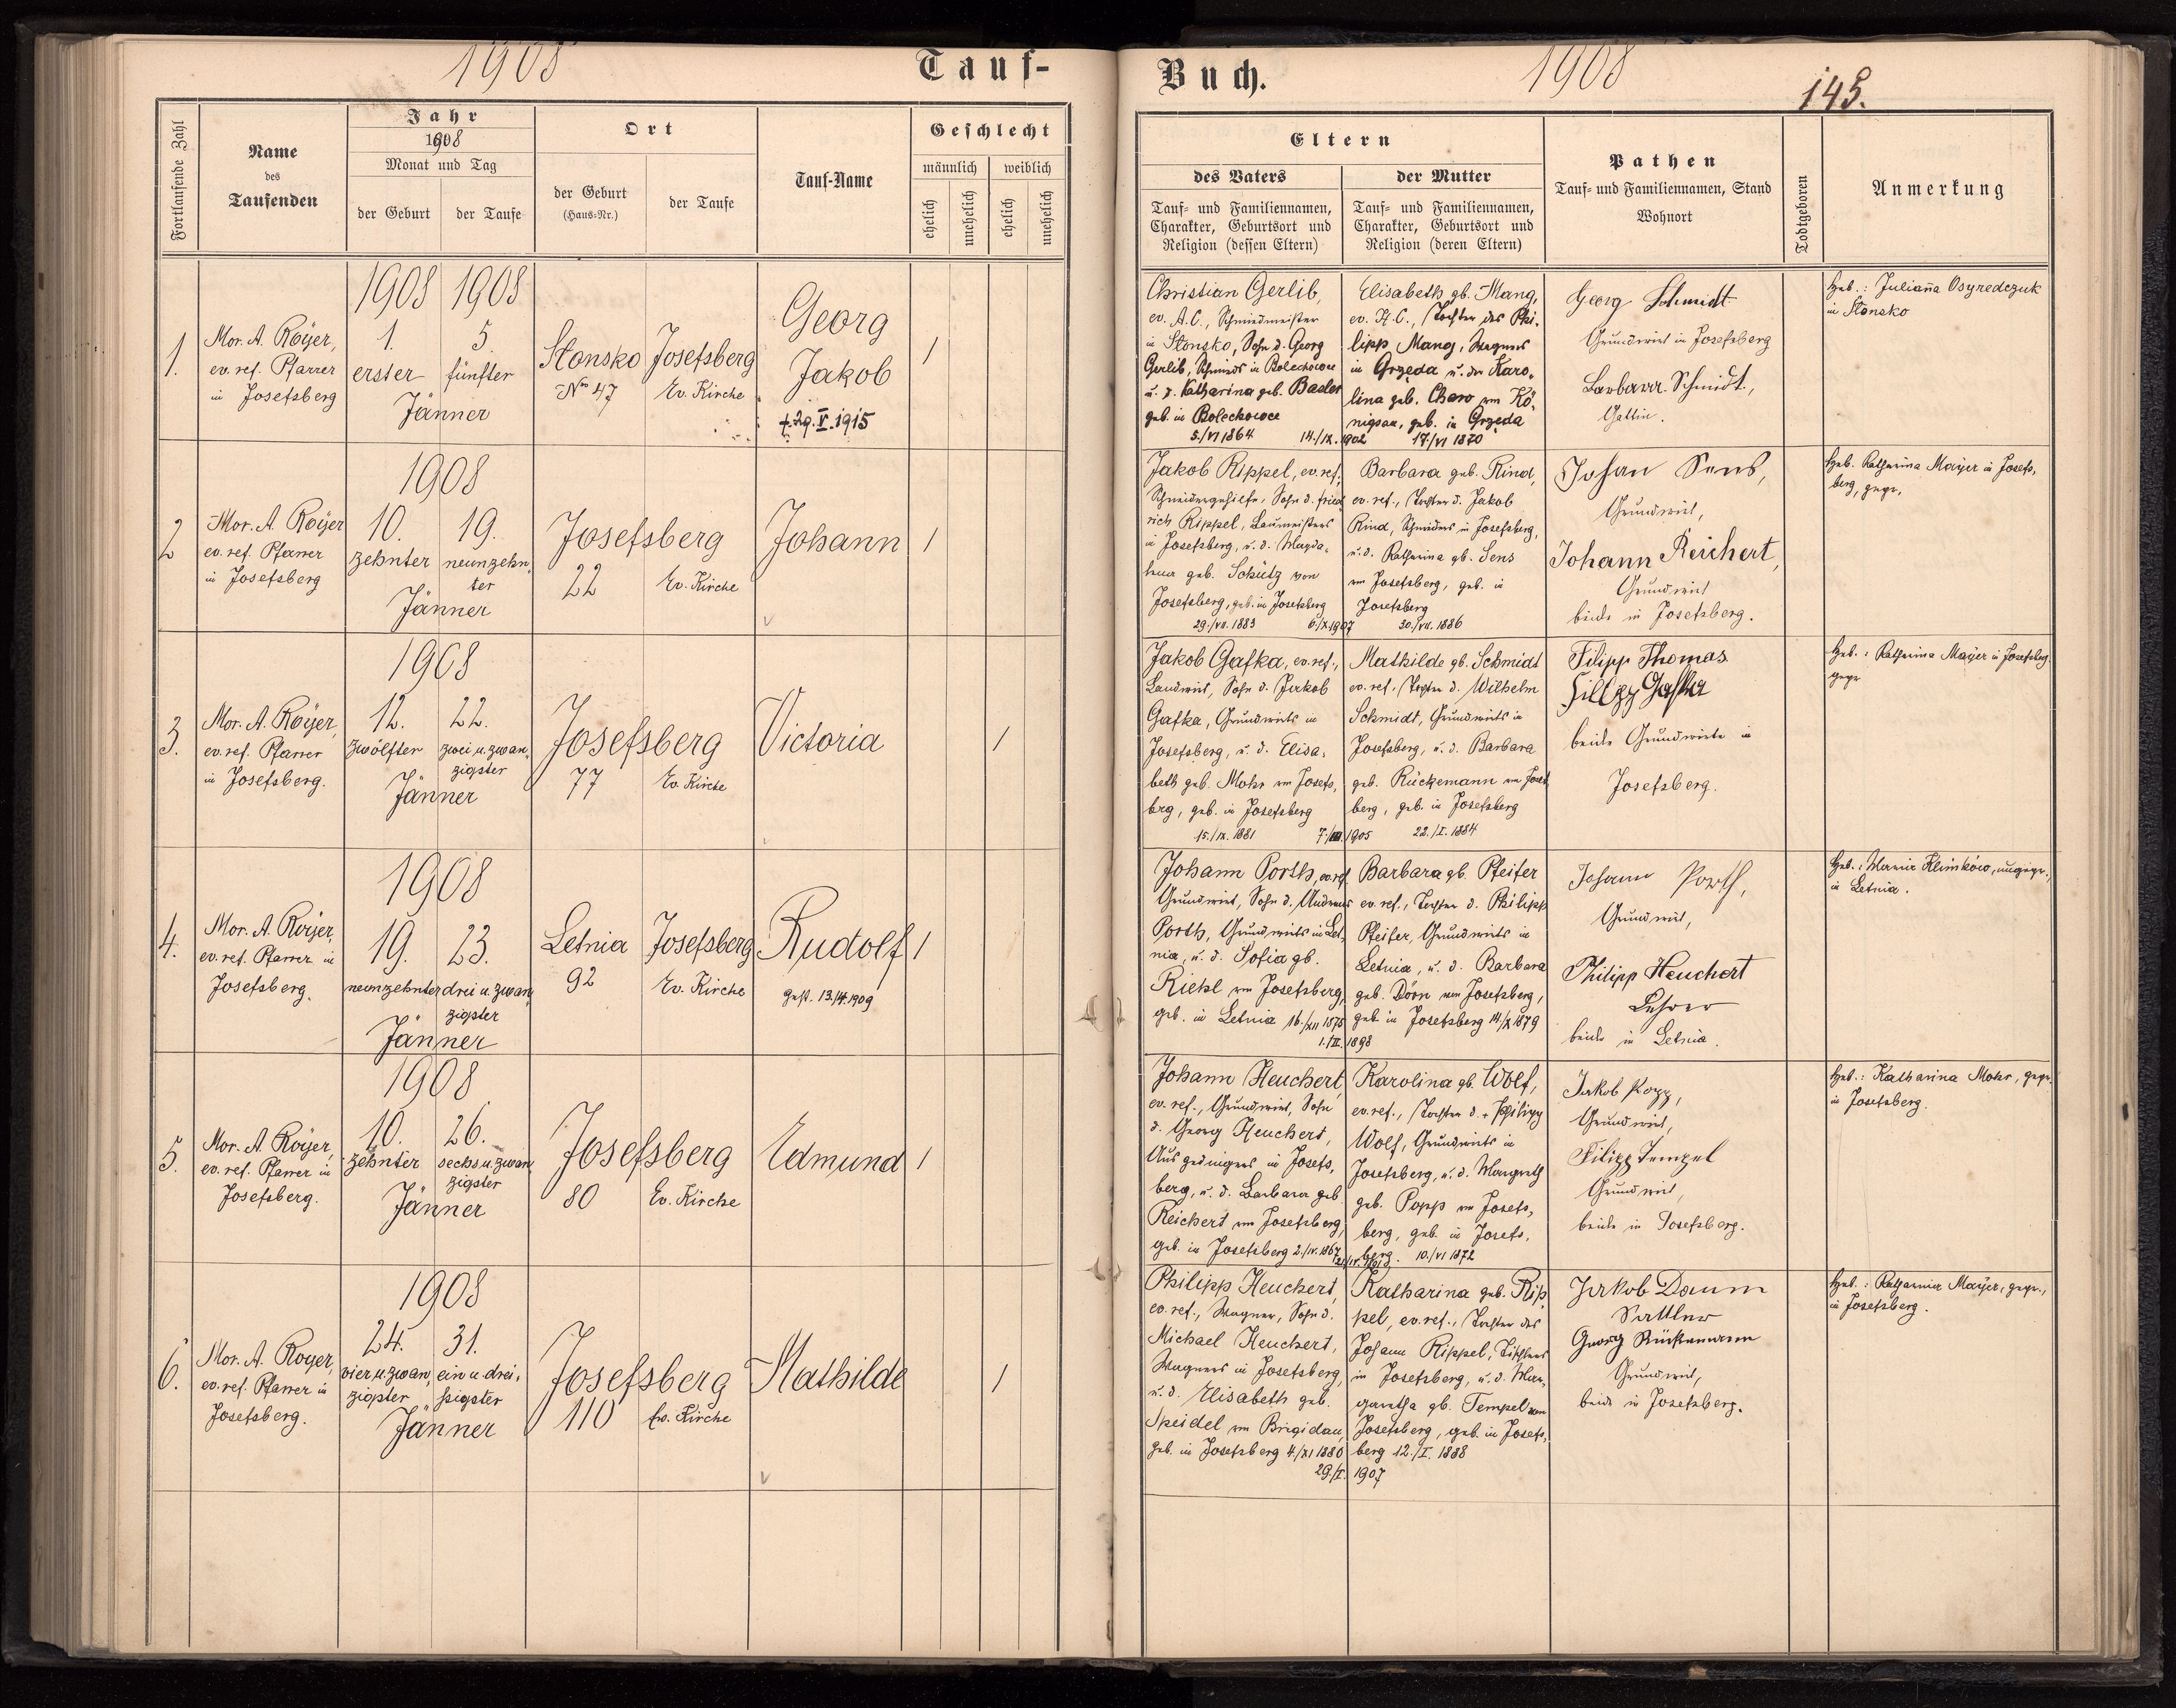 1908
Tauf-
Fortlaufende Zahl
Name
des
Taufenden
Jahr
1908
Monat und Tag
der Geburt
der Taufe
Ort
der Geburt
(Haus-Nr.)
der Taufe
Tauf-Name
Geschlecht
männlich
weiblich
ehelich
unehelich
ehelich
unehelich
1908 1908
1.
Mor. A. Royer,
ev. ref. Pfarrer
in Josefsberg
1. 5.
erster fünfter
Jänner
Stonsko Josefsberg
No 47 Ev. Kirche
Georg
Jakob
†. 29. V. 1915
1
1908
2
Mor. A. Royer
ev. ref. Pfarrer
in Josefsberg
10. 19.
zehnter neunzehn-
ter
Jänner
Josefsberg
22 Ev. Kirche
Johann
1
1908
3.
Mor. A. Royer,
ev. ref. Pfarrer
in Josefsberg.
12. 22.
zwölfter zwei u. zwan-
zigster
Jänner
Josefsberg
77 Ev. Kirche
Victoria
1
1908
4.
Mor. A. Royer,
ev. ref. Pfarrer in
Josefsberg.
19. 23.
neunzehnter drei u. zwan-
zigster
Jänner
Letnia Josefsberg
92 Ev. Kirche
Rudolf
gest. 13./4. 1909
1
1908
5.
Mor. A. Royer,
ev. ref. Pfarrer in
Josefsberg.
10. 26.
zehnter sechs u. zwan-
zigster
Jänner
Josefsberg
80 Ev. Kirche
Edmund
1
1908
6.
Mor. A. Royer,
ev. ref. Pfarrer in
Josefsberg.
24. 31.
vier u. zwan- ein u. drei-
zigster ssigster
Jänner
Josefsberg
110 Ev. Kirche
Mathilde
1
Buch.
1908
143.
Eltern
des Vaters
Tauf- und Familiennamen,
Charakter, Geburtsort und
Religion (dessen Eltern)
der Mutter
Tauf- und Familiennamen,
Charakter, Geburtsort und
Religion (deren Eltern)
Pathen
Tauf- und Familiennamen, Stand
Wohnort
Todtgeboren
Anmerkung
Christian Gerlib,
ev. A.C., Schmiedmeister
in Stonsko, Sohn d. Georg
Gerlib, Schmieds in Bolechowce
u. d. Katharina geb. Bader
geb. in Bolechowce
5./VI 1864 14./IX. 1902
Elisabeth gb. Mang,
ev. H.C., Tochter des Phi-
lipp Mang, Wagners
in Grzęda u. der Karo-
lina geb. Charo von Kö-
nigsau, geb. in Grzęda
17./VI 1870
Georg Schmidt
Grundwirt in Josefsberg
Barbara Schmidt,
Gattin.
Heb.: Julianna Osyredczuk
in Stonsko
Jakob Rippel, ev. ref.,
Schneidergehilfe, Sohn d. Fried-
rich Rippel, Baumeisters
in Josefsberg, u. d. Magda-
lena geb. Schütz von
Josefsberg, geb. in Josefsberg
29./VII. 1883 6./X. 1907
Barbara geb. Rind,
ev. ref., Tochter d. Jakob
Rind, Schneiders in Josefsberg,
u. d. Katharina gb. Sens
von Josefsberg, geb. in
Josefsberg
30./VII. 1886
Johan Sens,
Grundwirt,
Johann Reichert,
Grundwirt
beide in Josefsberg.
Heb. Katharina Mayer in Josefs-
berg, gepr.
Jakob Gafka, ev. ref.,
Landwirt, Sohn d. Jakob
Gafka, Grundwirts in
Josefsberg, u. d. Elisa-
beth geb. Mohr von Josefs-
berg, geb. in Josefsberg
15./IX. 1881 1905
Mathilde gb. Schmidt
ev. ref., Tochter d. Wilhelm
Schmidt, Grundwirts in
Josefsberg, u. d. Barbara
geb. Rückemann von Josefs-
berg, geb. in Josefsberg
22./I. 1884
Filipp Thomas
Filipp Gafka
beide Grundwirte in
Josefsberg.
Heb.: Katharina Mayer in Josefsberg
gepr.
Johann Porth, ev. ref.
Grundwirt, Sohn d. Andreas
Porth, Grundwirts in Let-
nia, u. d. Sofia gb.
Riehl von Josefsberg,
geb. in Letnia 16./XII 1875
1./II. 1898
Barbara gb. Pfeifer
ev. ref., Tochter d. Philipp
Pfeifer, Grundwirts in
Letnia, u. d. Barbara
geb. Dörn von Josefsberg,
geb. in Josefsberg 14./X 1879
Johann Porth,
Grundwirt,
Philipp Heuchert
Lehrer
beide in Letnia.
Heb.: Maria Klimków, ungepr.,
in Letnia.
Johann Heuchert,
ev. ref., Grundwirt, Sohn
d. Georg Heuchert,
Ausgedingers in Josefs-
berg, u. d. Barbara geb.
Reichert von Josefsberg,
geb. in Josefsberg 2./IV. 1867
Karolina gb. Wolf,
ev. ref., Tochter d. + Philipp
Wolf, Grundwirts in
Josefsberg, u. d. Margareth
geb. Popp von Josefs-
berg, geb. in Josefs-
berg. 10./VI 1872
Jakob Popp,
Grundwirt,
Filipp Tempel
Grundwirt,
beide in Josefsberg.
Heb.: Katharina Mohr, gepr.
in Josefsberg.
Philipp Heuchert,
ev. ref., Wagner, Sohn d.
Michael Heuchert,
Wagners in Josefsberg,
u. d. Elisabeth geb.
Speidel von Brigidau,
geb. in Josefsberg 4./XI 1880
29./I. 1907
Katharina geb. Rip-
pel, ev. ref., Tochter des
Johann Rippel, Tischlers
in Josefsberg, u. d. Mar-
garetha gb. Tempel von
Josefsberg, geb. in Josefs-
berg 12./I. 1888
Jakob Daum
Sattler
Georg Rückemann
Grundwirt,
beide in Josefsberg.
Heb.: Katharina Mayer, gepr.,
in Josefsberg.